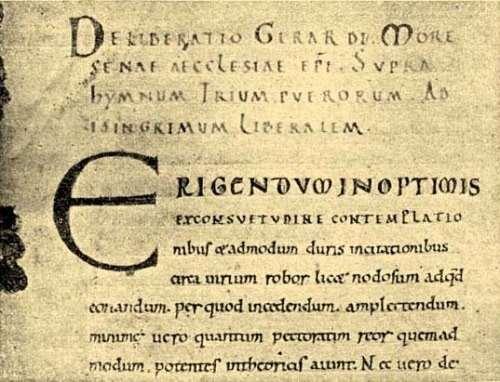 DELIBERATIO GERARDI. MORE
SENAE AECCLESIAE EPI. SUPRA
hYMNUM TRIUM PUERORUM. AD
ISINGRIMUM LIBERALEM.
ERIGENDUM IN OPTIMIS
EX CONSUETUDINE CONTEMPLATIO
nibus & admodum duris incitationibus
circa uirium robor lic& nodosum ad qd
coriandum. per quod incedendum. amplectendum.
minime uero quantum pectoratim reor quemad
modum. potentes in theoricis aiunt. Nec uero de